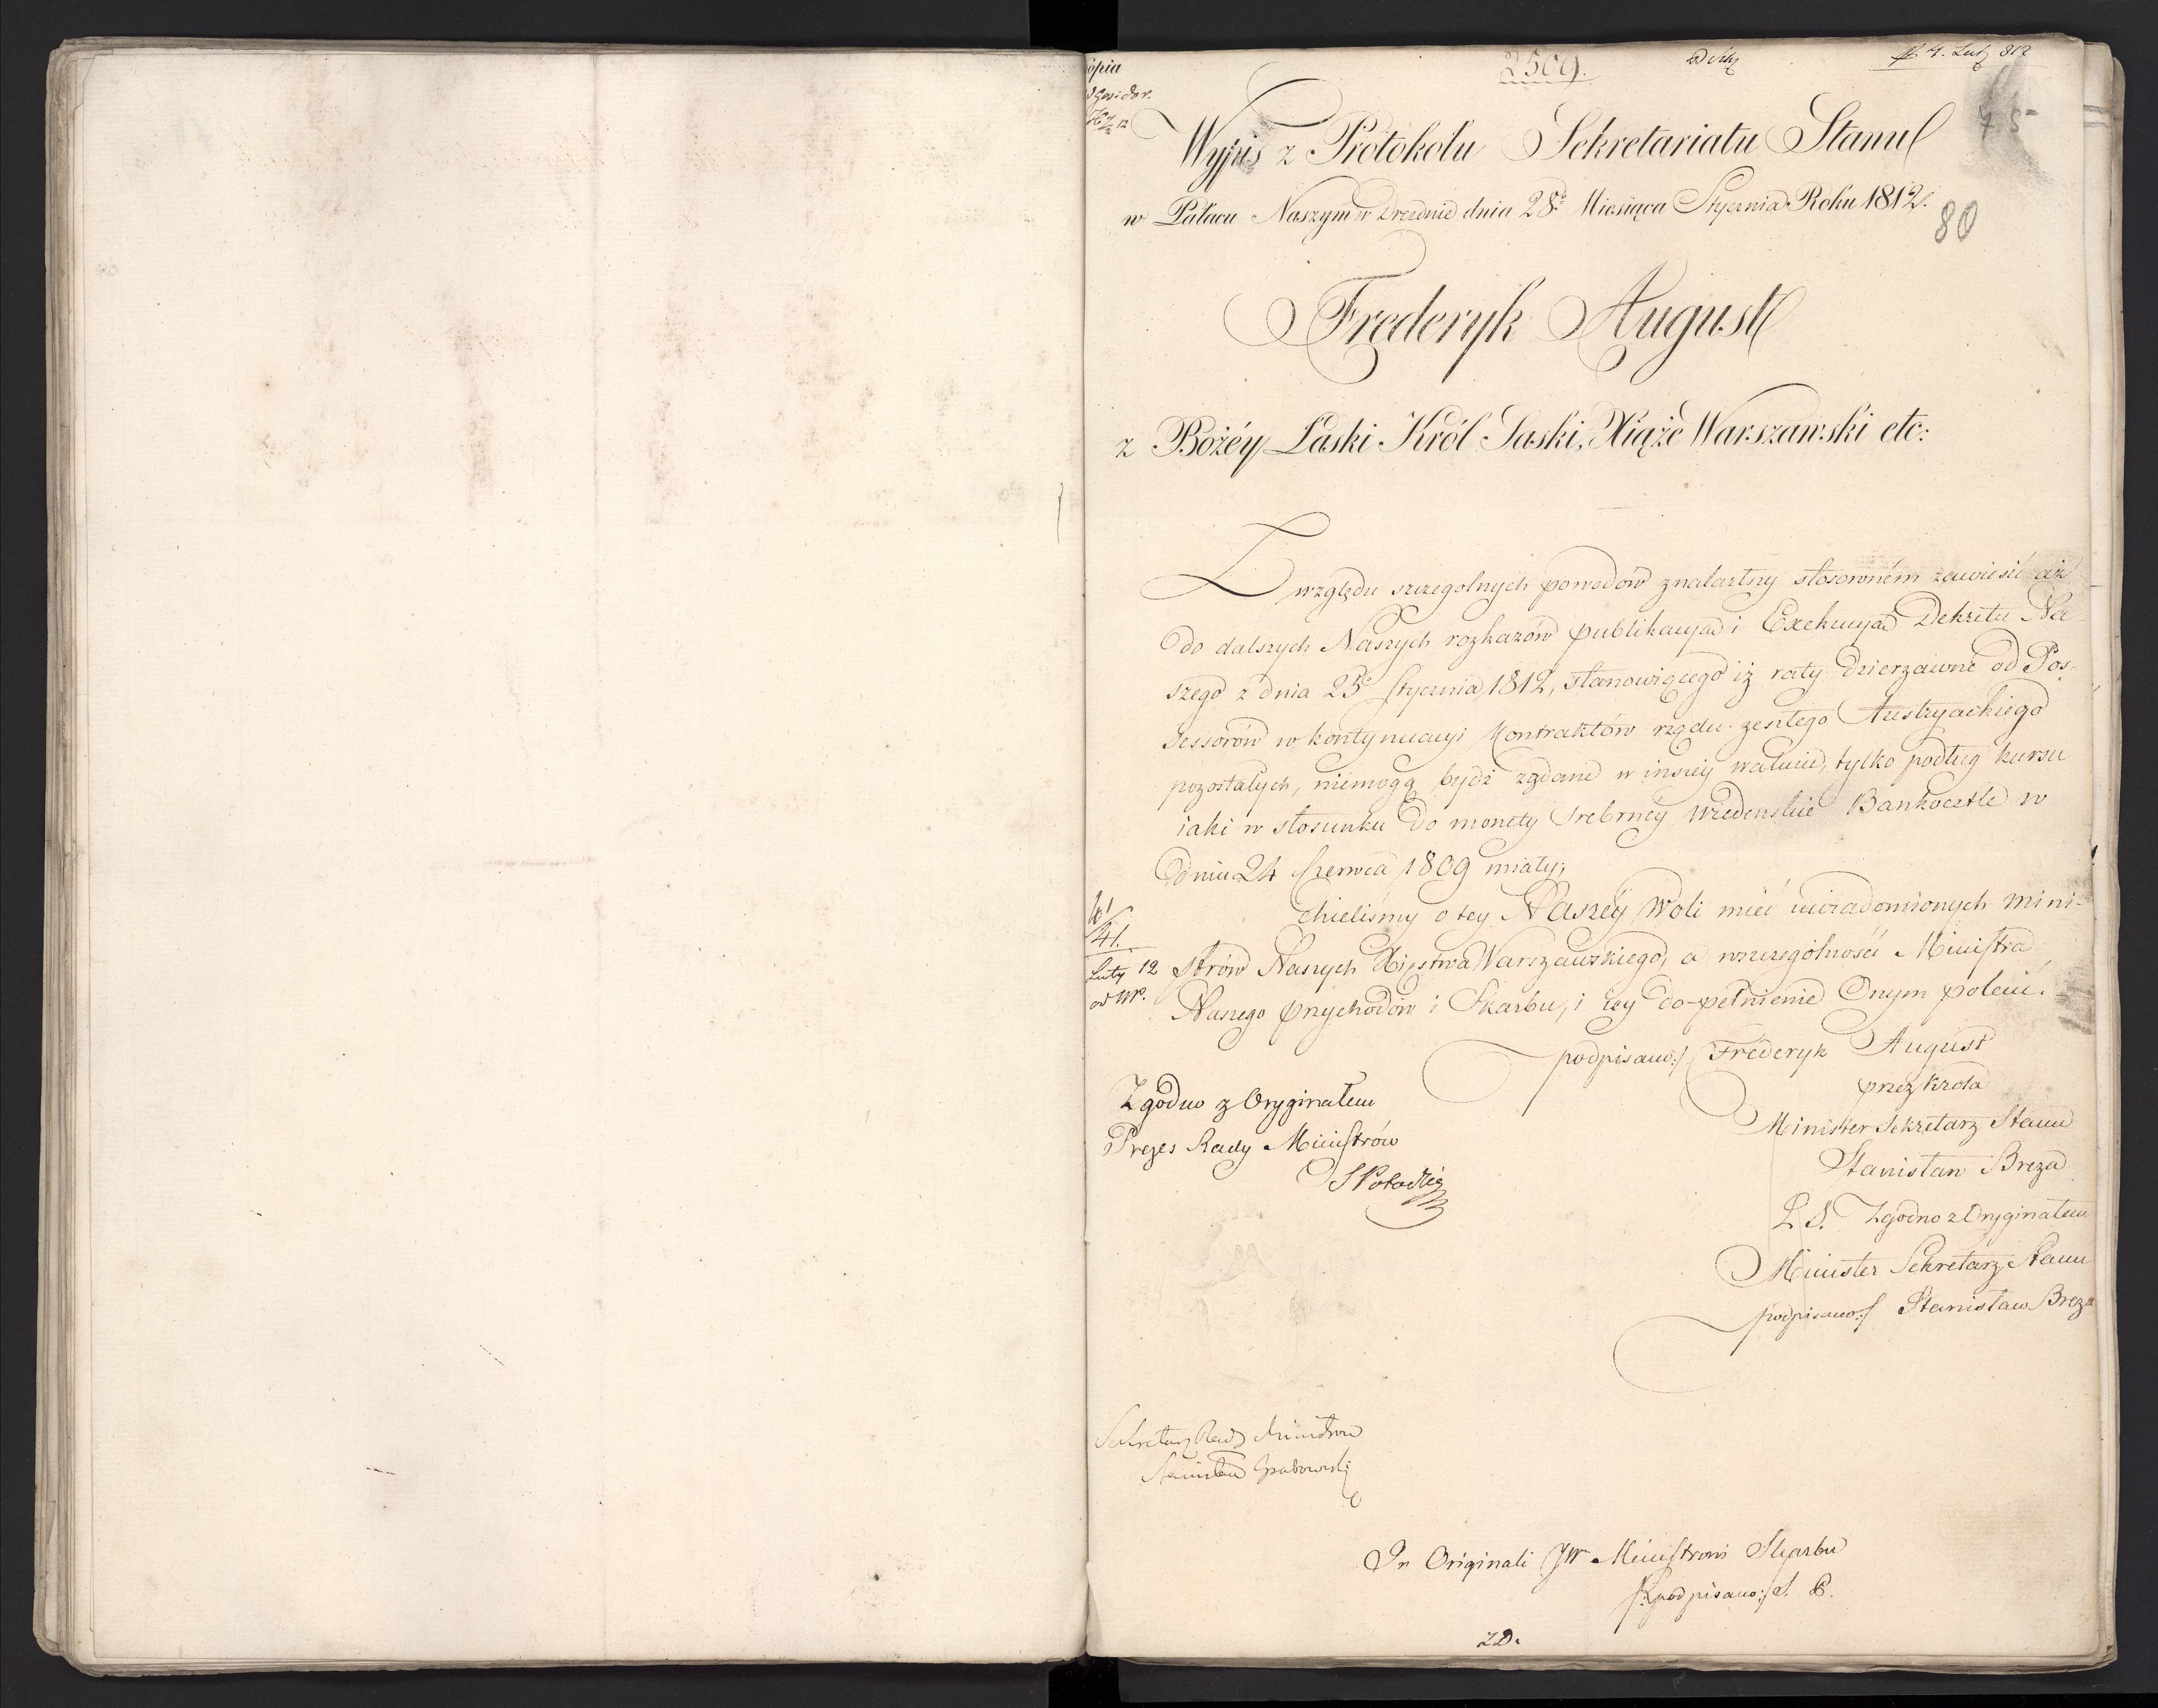 2509.
d. 4. Luty 812
75
80
Wypis z Protokołu Sekretariatu Stanu
w Pałacu Naszym w Dreznie dnia 28° Miesiąca Stycznia Roku 1812.
Frederyk August
z Bożéy Łaski Król Saski, Xiąże Warszawski etc:
Z względu szczegolnych powodów znalazłszy stosowném zawiesić aż
do dalszych Naszych rozkazów publikacyą i Exekucyą Dekretu Na
szego z dnia 25° Stycznia 1812, stanowiącego iż raty dzierzawne od Pos-
sessorów w kontynuacyi Kontraktów rządu zeszłego Austryackiego
pozostałych, niemogą bydź żądane w inszéy walucie, tylko podług kursu
iaki w stosunku do monety srebrney Wiedenskie Bankocetle w
dniu 24 Czerwca 1809 miały;
chcieliśmy o tey Naszéy Woli mieć uwiadomionych Mini-
strów Naszych Xięstwa Warszawskiego, a wszczególności Ministra
Naszego Przychodów i Skarbu, i tey do-pełnienie Onym polecić.
W/41.
Luty 12
od MP.
podpisano:/ Fréderyk August
przez Króla
Minister Sekretarz Stanu
Stanisław Breza
L.S. Zgodno z Oryginałem
Minister Sekretarz Stanu
podpisano:/ Stanisław Breza
Zgodno z Oryginałem
Prezes Rady Ministrów
S Potocki
Sekretarz Rady Ministrow
Stanisław Grabowski
In Originali JW Ministrowi Skarbu
/:podpisano:/ S. P.